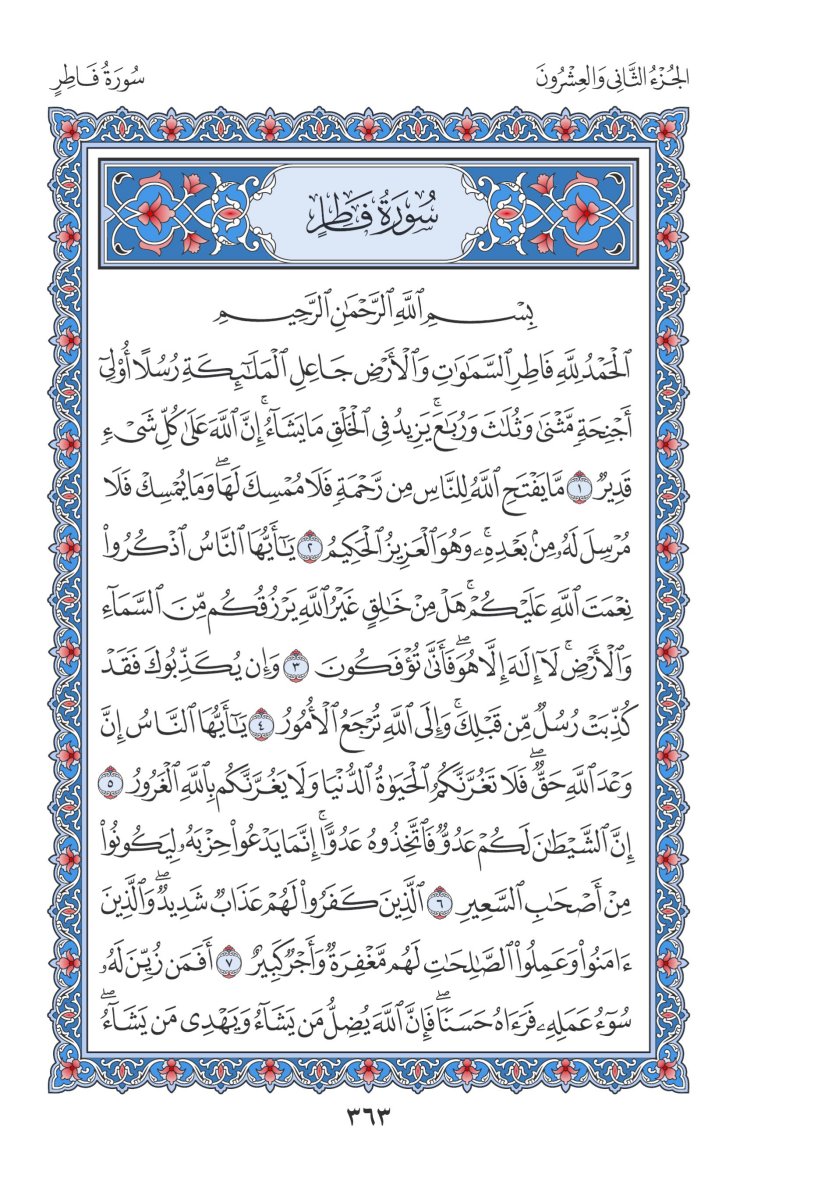 الجُزْءُ الثَّانِي وَالعِشْرُونَ
سُورَةُ فَاطِرٍ
سُورَةُ فَاطِرٍ
بِسْمِ ٱللَّهِ ٱلرَّحْمَٰنِ ٱلرَّحِيمِ
ٱلْحَمْدُ لِلَّهِ فَاطِرِ ٱلسَّمَٰوَٰتِ وَٱلْأَرْضِ جَاعِلِ ٱلْمَلَٰٓئِكَةِ رُسُلًا أُو۟لِىٓ
أَجْنِحَةٍ مَّثْنَىٰ وَثُلَٰثَ وَرُبَٰعَ ۚ يَزِيدُ فِى ٱلْخَلْقِ مَا يَشَآءُ ۚ إِنَّ ٱللَّهَ عَلَىٰ كُلِّ شَىْءٍ
قَدِيرٌ ١ مَّا يَفْتَحِ ٱللَّهُ لِلنَّاسِ مِن رَّحْمَةٍ فَلَا مُمْسِكَ لَهَا ۖ وَمَا يُمْسِكْ فَلَا
مُرْسِلَ لَهُۥ مِنۢ بَعْدِهِۦ ۚ وَهُوَ ٱلْعَزِيزُ ٱلْحَكِيمُ ٢ يَٰٓأَيُّهَا ٱلنَّاسُ ٱذْكُرُوا۟
نِعْمَتَ ٱللَّهِ عَلَيْكُمْ ۚ هَلْ مِنْ خَٰلِقٍ غَيْرُ ٱللَّهِ يَرْزُقُكُم مِّنَ ٱلسَّمَآءِ
وَٱلْأَرْضِ ۚ لَآ إِلَٰهَ إِلَّا هُوَ ۖ فَأَنَّىٰ تُؤْفَكُونَ ٣ وَإِن يُكَذِّبُوكَ فَقَدْ
كُذِّبَتْ رُسُلٌ مِّن قَبْلِكَ ۚ وَإِلَى ٱللَّهِ تُرْجَعُ ٱلْأُمُورُ ٤ يَٰٓأَيُّهَا ٱلنَّاسُ إِنَّ
وَعْدَ ٱللَّهِ حَقٌّ ۖ فَلَا تَغُرَّنَّكُمُ ٱلْحَيَوٰةُ ٱلدُّنْيَا وَلَا يَغُرَّنَّكُم بِٱللَّهِ ٱلْغَرُورُ ٥
إِنَّ ٱلشَّيْطَٰنَ لَكُمْ عَدُوٌّ فَٱتَّخِذُوهُ عَدُوًّا ۚ إِنَّمَا يَدْعُوا۟ حِزْبَهُۥ لِيَكُونُوا۟
مِنْ أَصْحَٰبِ ٱلسَّعِيرِ ٦ ٱلَّذِينَ كَفَرُوا۟ لَهُمْ عَذَابٌ شَدِيدٌ ۖ وَٱلَّذِينَ
ءَامَنُوا۟ وَعَمِلُوا۟ ٱلصَّٰلِحَٰتِ لَهُم مَّغْفِرَةٌ وَأَجْرٌ كَبِيرٌ ٧ أَفَمَن زُيِّنَ لَهُۥ
سُوٓءُ عَمَلِهِۦ فَرَءَاهُ حَسَنًا ۖ فَإِنَّ ٱللَّهَ يُضِلُّ مَن يَشَآءُ وَيَهْدِى مَن يَشَآءُ ۖ
٣٦٣